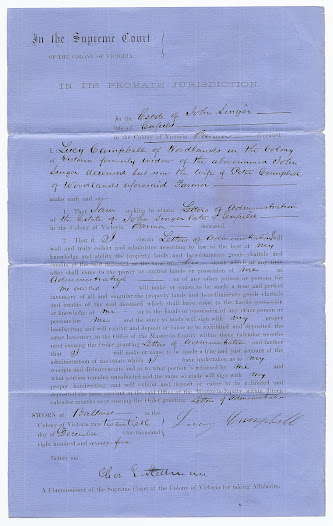 In the Supreme Court
OF THE COLONY OF VICTORIA.
IN ITS PROBATE JURISDICTION
In the Estate of John Singer
late of Enfield
in the Colony of Victoria deceased
I, Lucy Campbell of Woodlands in the Colony
of Victoria formerly widow of the abovenamed John
Singer deceased but now the wife of Peter Campbell
of Woodlands aforesaid Farmer
make oath and say—
1. That I am seeking to obtain Letters of Administration
of the Estate of John Singer late of Enfield
in the Colony of Victoria deceased
2. That if I obtain Letters of Administration I will
well and truly collect and administer according to law to the best of my
knowledge and ability the property lands and hereditaments goods chattels and
after shall come to the power or control hands or possession of me as
Administratrix or of any other person or persons for
me and that I will make or cause to be made a true and perfect
inventory of all and singular the property lands and hereditaments goods chattels
and credits of the said deceased which shall have come to the hands possession
or knowledge of me or to the hands or possession of any other person or
persons for me and the same so made will sign with my proper
handwriting and will exhibit and deposit or cause to be exhibited and deposited the
same Inventory in the Office of the Master-in-Equity within three calendar months
next ensuing the Order granting Letters of Administration and further
that I will make or cause to be made a true and just account of the
administration of the estate which I have undertaken as to my
receipts and disbursements and as to what portion is retained by me and
what portion remains uncollected and the same so made will sign with my
proper handwriting and will exhibit and deposit or cause to be exhibited and
deposited
calendar months next ensuing the Order granting Letters of Administration
SWORN at Ballarat in the
Colony of Victoria this twentieth
day of December One thousand
eight hundred and seventy five
Lucy Campbell
Before me
A Commissioner of the Supreme Court of the Colony of Victoria for taking Affidavits.